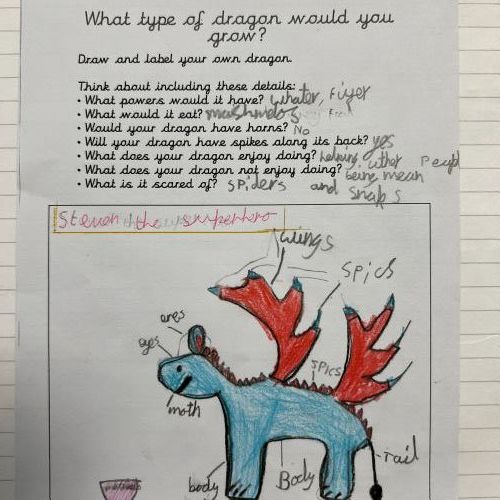 What type of dragon would you
grow?
Draw and label your own dragon.
Think about including these details:
• What powers would it have? whater, Fiyer
• What would it eat? mashmelos
• Would your dragon have horns? No
• Will your dragon have spikes along its back? yes
• What does your dragon enjoy doing? helping uther peopl
• What does your dragon not enjoy doing? being mean
• What is it scared of? spiders and snaks
Steven the superhro
wings
spics
eres
eyes
spics
moth
tail
body
Body